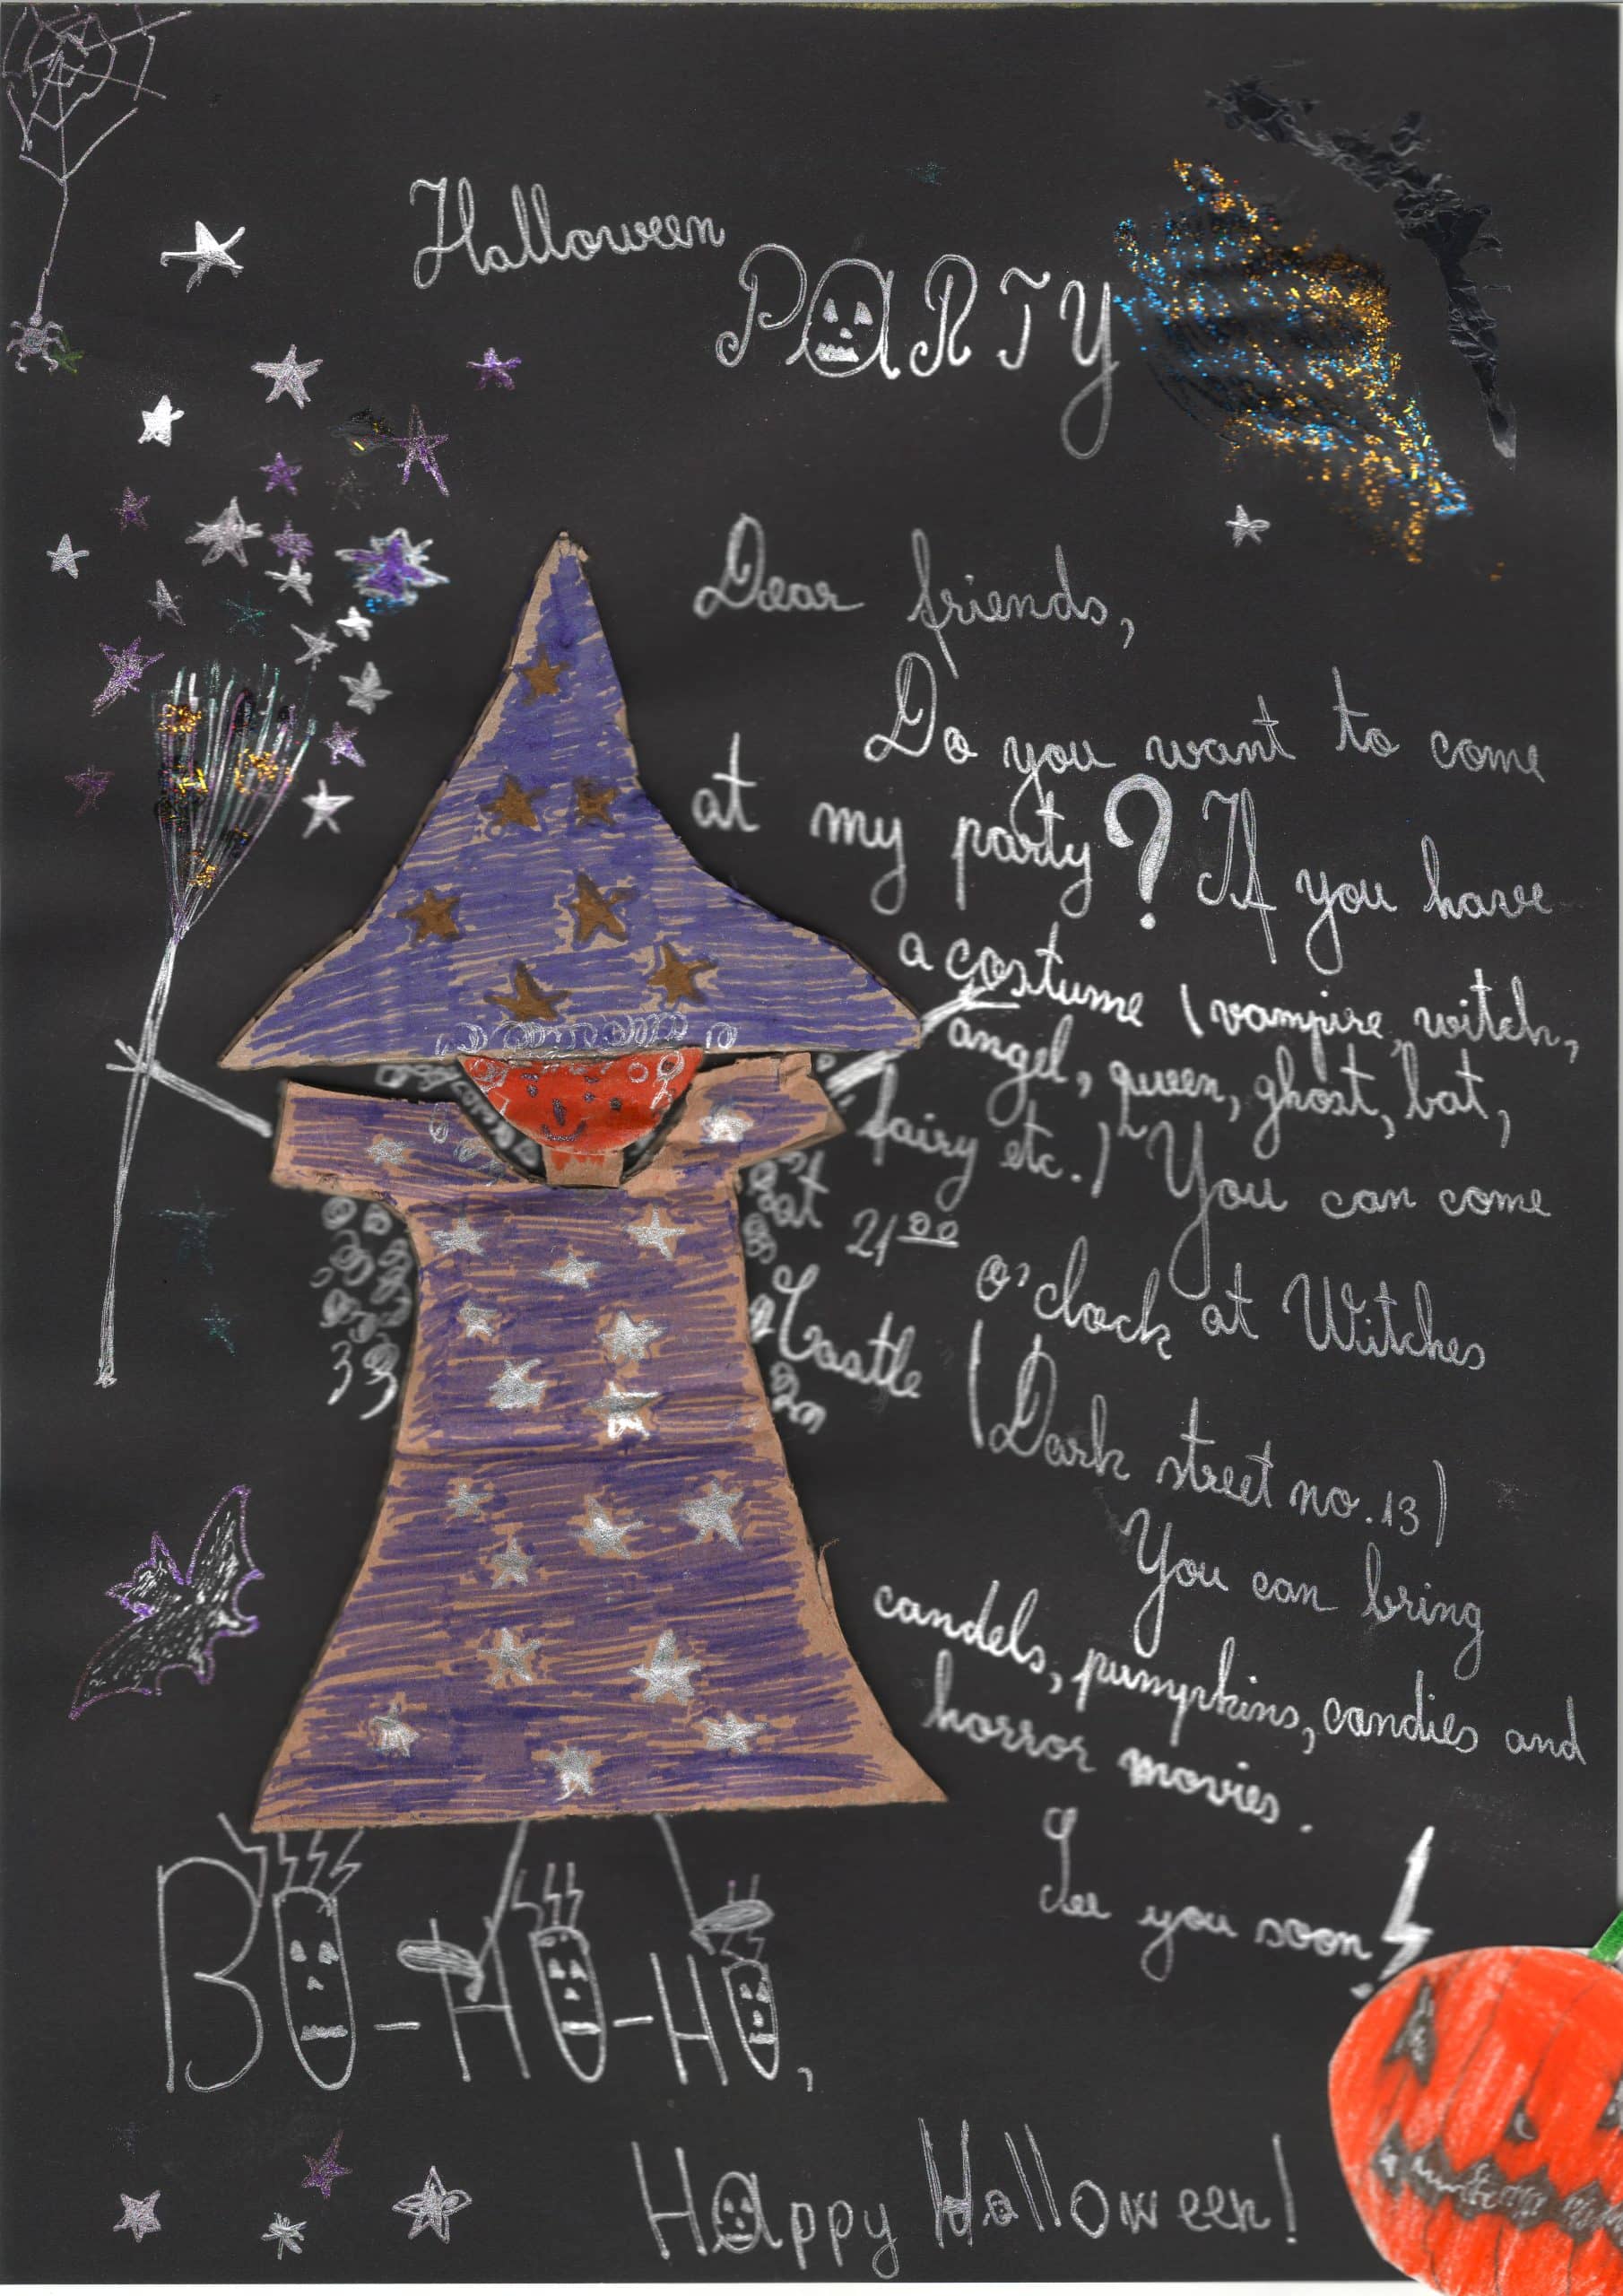 Halloween
PARTY
Dear friends,
Do you want to come
at my party? If you have
a costume (vampire, witch,
angel, queen, ghost, bat,
fairy etc.) You can come
at 21⁰⁰ o'clock at Witches
Castle (Dark street no. 13)
You can bring
candels, pumpkins, candies and
horror movies.
See you soon!
BO-HO-HO,
Happy Halloween!